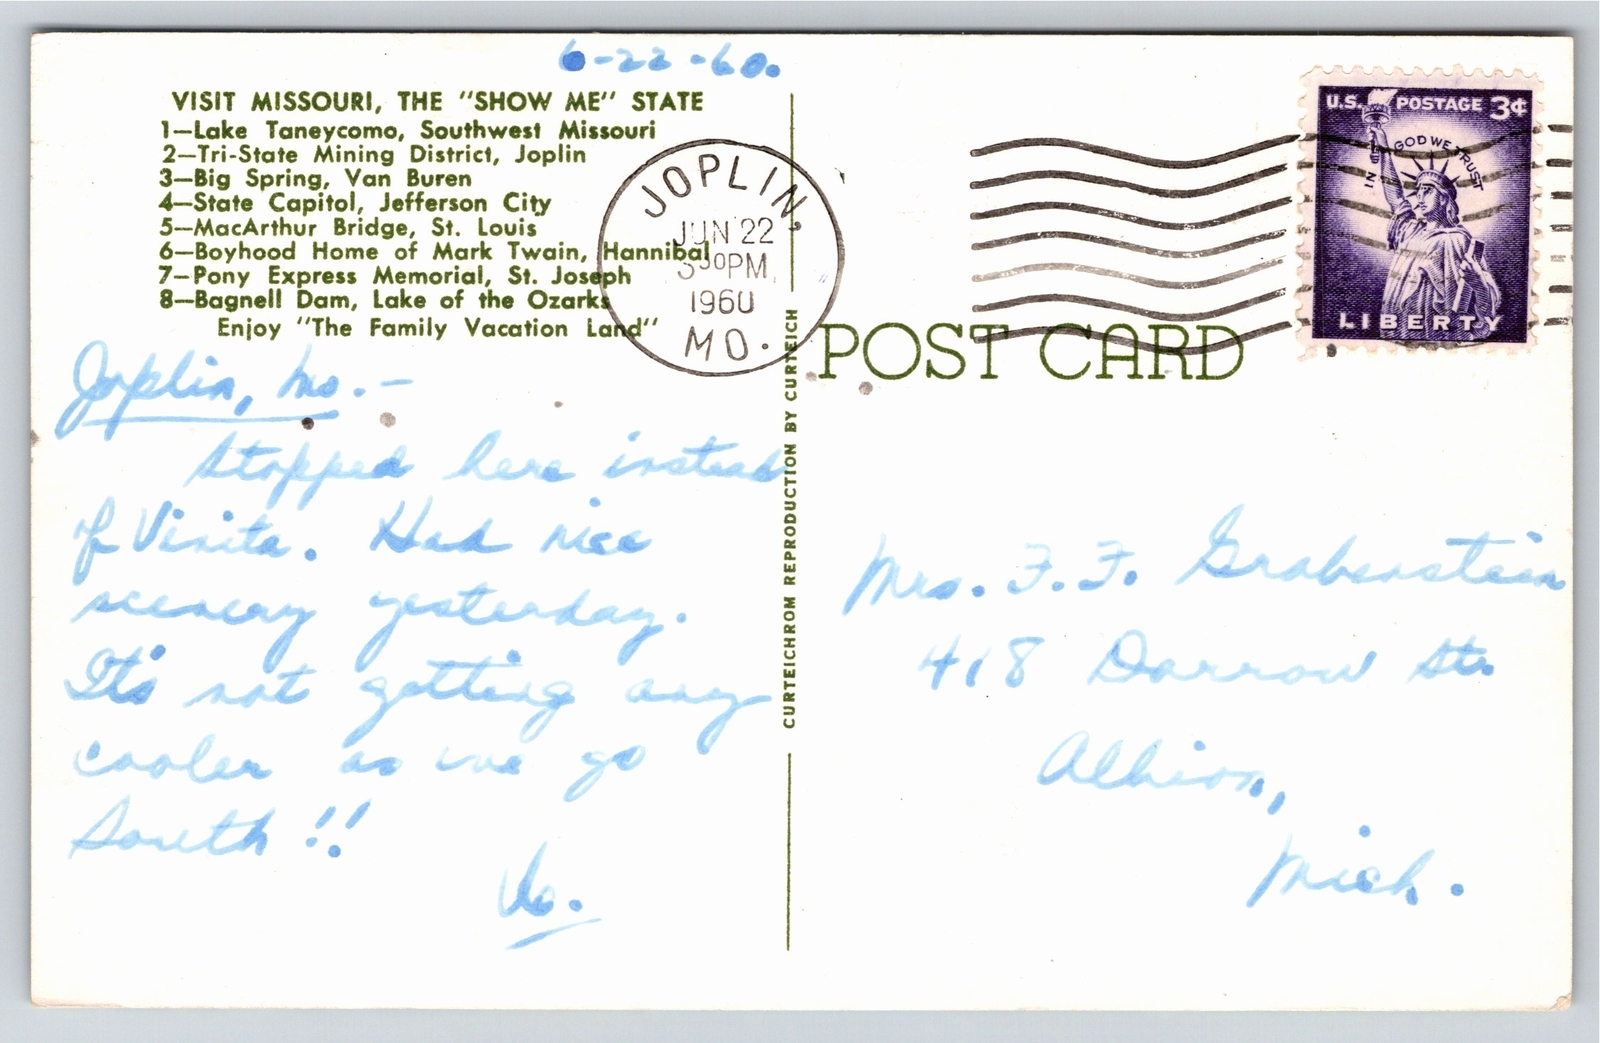 6-22-60.
VISIT MISSOURI, THE "SHOW ME" STATE
1—Lake Taneycomo, Southwest Missouri
2—Tri-State Mining District, Joplin
3—Big Spring, Van Buren
4—State Capitol, Jefferson City
5—MacArthur Bridge, St. Louis
6—Boyhood Home of Mark Twain, Hannibal
7—Pony Express Memorial, St. Joseph
8—Bagnell Dam, Lake of the Ozarks
Enjoy "The Family Vacation Land"
Joplin, Mo. —
Stopped here instead
of Vinita. Had nice
scenery yesterday.
It's not getting any
cooler as we go
South !!
Vo.
CURTEICHROM REPRODUCTION BY CURTEICH
JOPLIN,
JUN 22
530PM
1960
MO.
POST CARD
U.S. POSTAGE 3¢
IN GOD WE TRUST
LIBERTY
Mrs. F. F. Grabenstein
418 Darrow St.
Albion,
Mich.